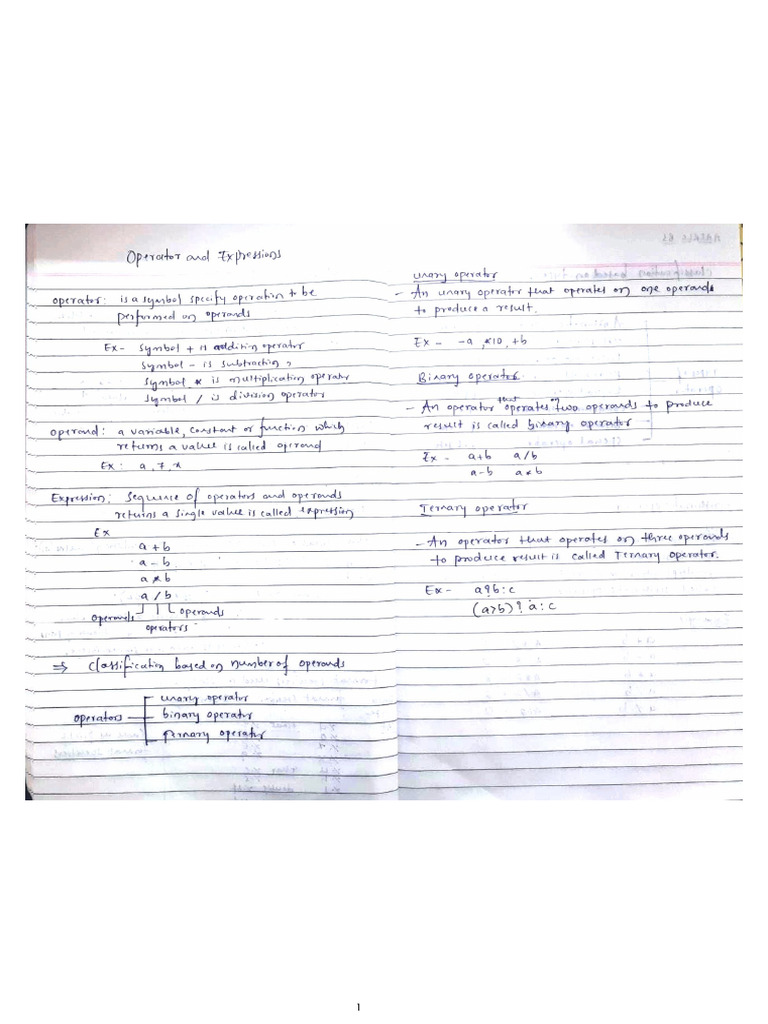 Operator and Expressions
operator: is a symbol specify operation to be
performed on operands
Ex- symbol + is addition operator
symbol - is subtraction "
symbol * is multiplication operator
symbol / is division operator
operand: a variable, constant or function which
returns a value is called operand
Ex: a, 7, x
Expression: sequence of operators and operands
returns a single value is called expression
Ex
a + b
a - b
a * b
a / b
operands operands
operators
⇒ classification based on number of operands
unary operator
operators binary operator
ternary operator
unary operator
- An unary operator that operates on one operands
to produce a result.
Ex - -a, *10, +b
Binary operator
- An operator that operates on two operands to produce
result is called binary operator
Ex - a+b a/b
a-b a*b
Ternary operator
- An operator that operates on three operands
to produce result is called Ternary operator.
Ex - a?b:c
(a>b)? a:c
1